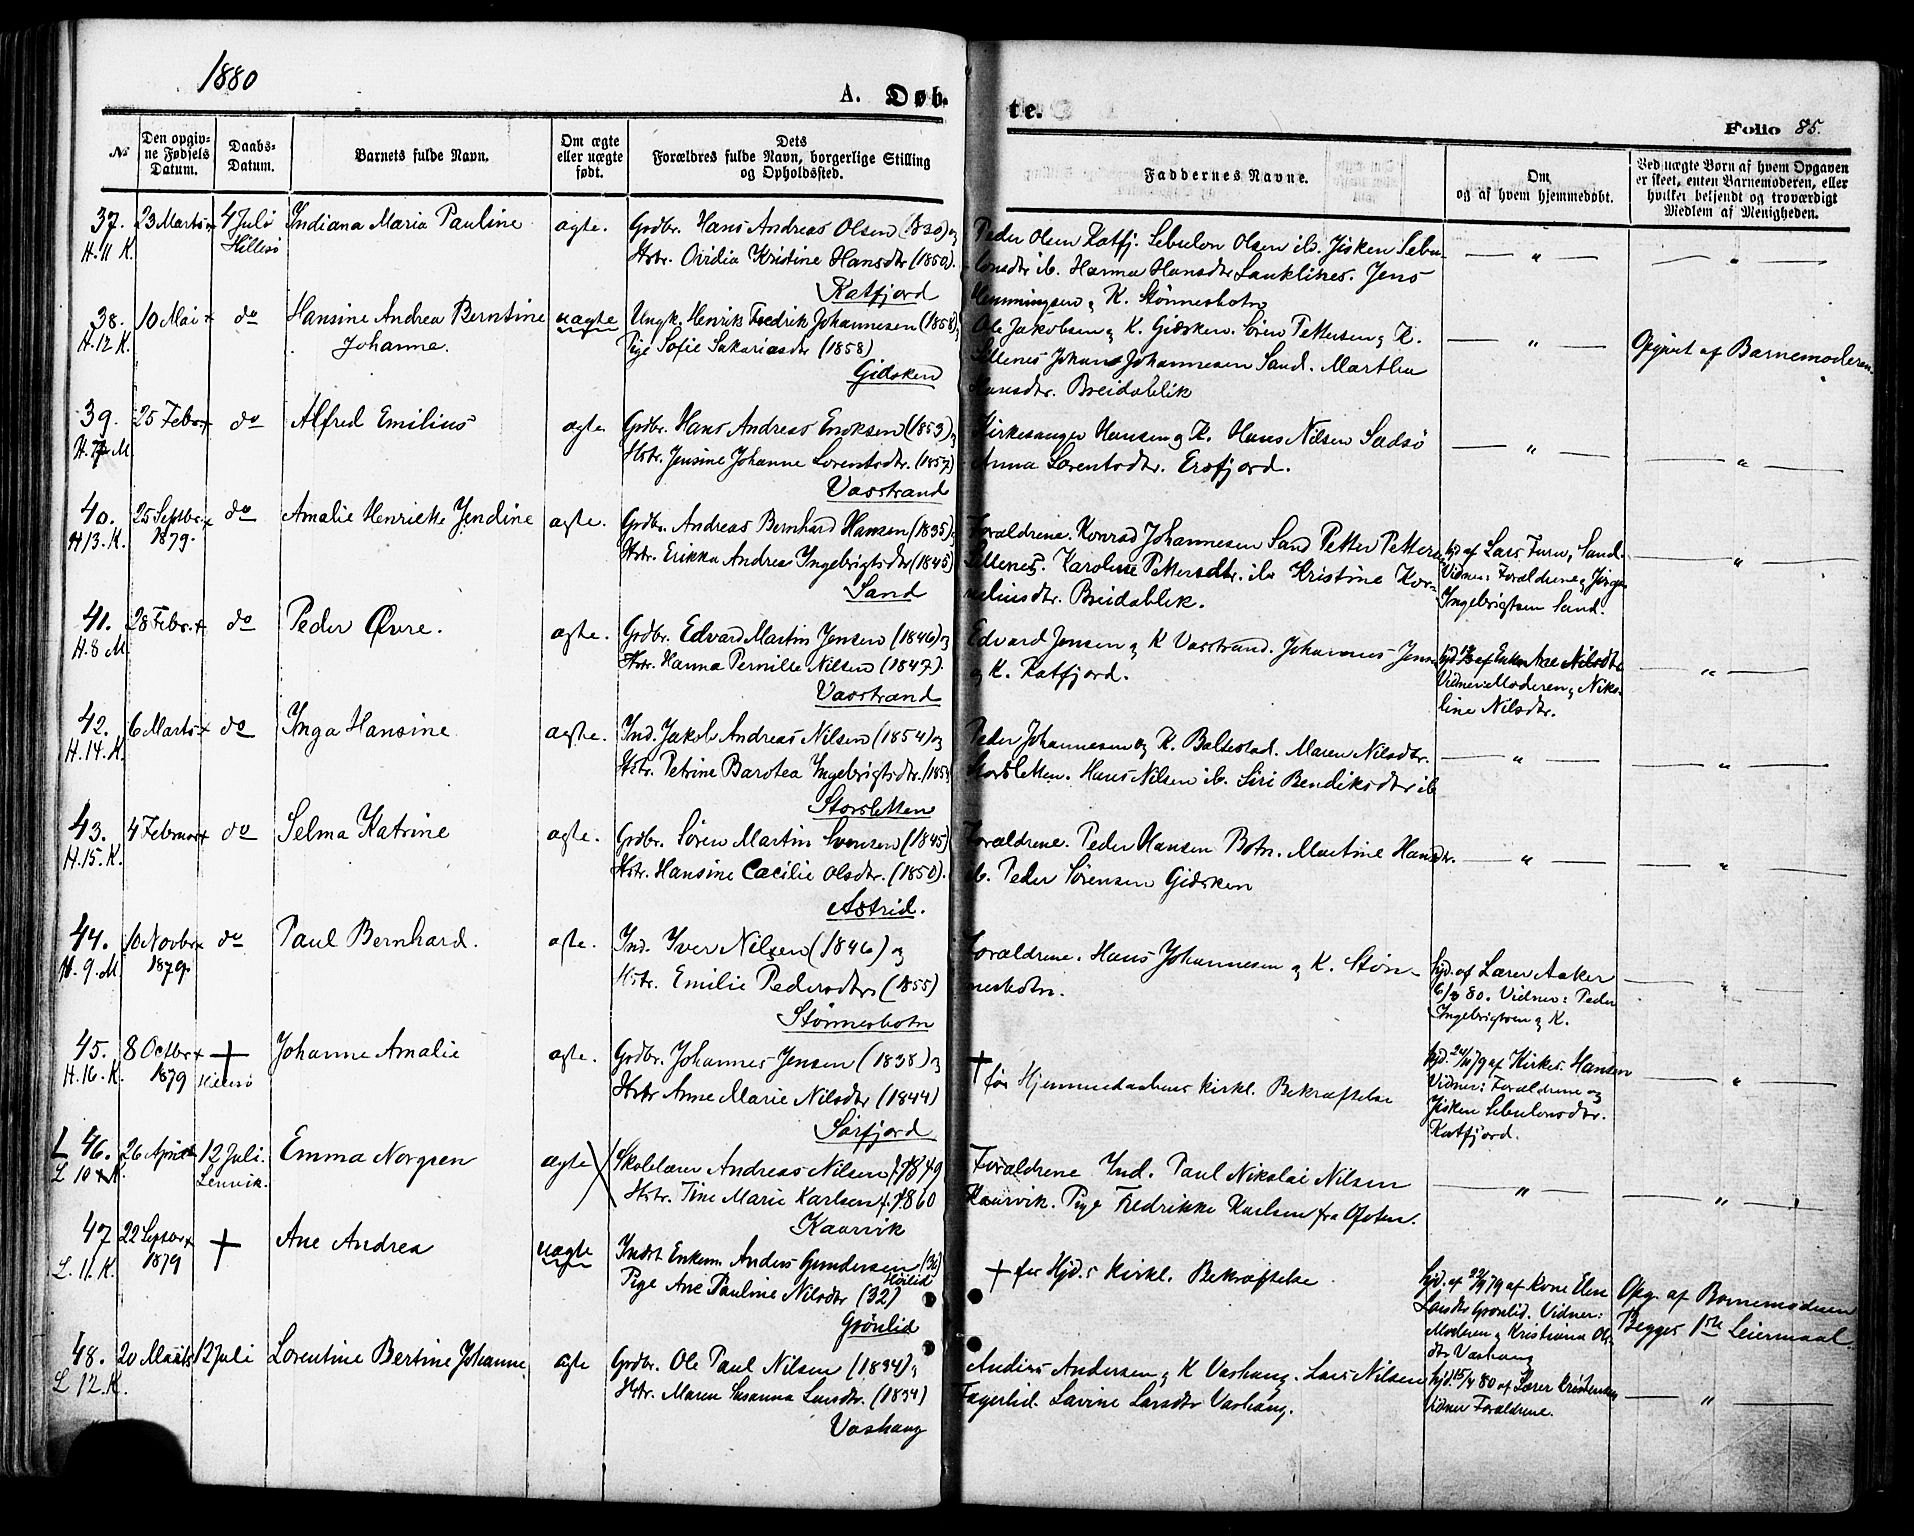 1880
A. Døb-
te.
Folio 85.
№
Den opgiv-
ne Fødsels
Datum.
Daabs-
Datum.
Barnets fulde Navn.
Om ægte
eller uægte
født.
Dets
Forældres fulde Navn, borgerlige Stilling
og Opholdssted.
Faddernes Navne.
Om
og af hvem hjemmedøbt.
Ved uægte Børn af hvem Opgaven
er skeet, enten Barnemoderen, eller
hvilket beiendt og troværdigt
Medlem af Menigheden.
37. 23 Marts 4 Juli Indiana Maria Pauline ægte. Grdbr. Hans Andreas Olsen (1830) og
H. 11 K. Hillesø Hstr. Ovidia Kristine Hansdtr (1850).
Katfjord
Peder Olsen Katfj. Sebulon Olsen ib. Jisken Sebu-
lonsdtr ib. Hanna Hansdtr Lauklines. Jens
Hemmingsen og K. Stønnesbotn
38. 10 Mai do Hansine Andrea Berntine uægte Ungk. Henrik Fredrik Johannesen (1858) og
H. 12 K. Johanne. Pige Sofie Sakariasdtr (1858)
Gidsken
Ole Jakobsen og K. Gidsken. Søren Pettersen og K.
Lillenes Johan Johannesen Sand. Martha
Hansdtr. Breidablik
Opgivet af Barnemoderen.
39. 25 Febr. do Alfred Emilius ægte Grdbr. Hans Andreas Enoksen (1853) og
H. 7 M Hstr. Jensine Johanne Lorentsdtr. (1857)
Vasstrand
Kirkesanger Hansen og K. Hans Nilsen Sadsø
Anna Lorentsdtr. Ersfjord.
40. 25 Septbr. do Amalie Henriette Jendine ægte. Grdbr. Andreas Bernhard Hansen (1835) og
H 13. K. 1879. Hstr. Erikka Andrea Ingebrigtsdtr (1845)
Sand
Forældrene. Konrad Johannesen Sand Petter Petters.
Lillenes. Karoline Pettersdtr. ib Kristine Kor-
neliusdtr. Breidablik.
hjd af Lars Furu, Sand.
Vidner: Forældrene og Jørgen
Ingebrigtsen Sand.
41. 28 Febr. do Peder Øvre. ægte. Grdbr. Edvard Martin Jensen (1846) og
H. 8 M. Hstr. Hanna Pernille Nilsen (1847).
Vasstrand
Edvard Jensen og K Vasstrand. Johannes Jensen
og K. Katfjord.
af Enken Ane Nilsdtr
Vidner: Moderen og Niko-
line Nilsdtr.
42. 6 Marts do Inga Hansine ægte. Ind. Jakob Andreas Nilsen (1854) og
H. 14. K. Hstr. Petrine Barotea Ingebrigtsdtr.
Storsletten
Peder Johannesen og K. Baltestad. Maren Nilsdtr.
Storsletten. Hans Nilsen ib. Siri Bendiksdtr ib
43. 4 Februar do Selma Katrine ægte. Grdbr. Søren Martin Svensen (1845)
H. 15. K. Hstr. Hansine Cæcilie Olsdtr. (1850).
Astrid.
Forældrene. Peder Hansen Botn. Martine Hansdtr.
ib. Peder Sørensen Gidsken
44. 10 Novbr do Paul Bernhard. ægte. Ind. Iver Nilsen (1846) og
H. 9. M. 1879. Hstr. Emilie Pedersdtr (1855)
Stønnesbotn
Forældrene. Hans Johannesen og K. Støn-
nesbotn.
hjd. af Lærer Aaker
6/3 80. Vidner: Peder
Ingebrigtsen og K.
45. 8 Octbr † Johanne Amalie ægte. Grdbr. Johannes Jensen (1838) og
H. 16. K. 1879 Hillesø Hstr Anne Marie Nilsdtr (1844)
Sørfjord
† før Hjemmedaabens kirkl. Bekræftelse
hjd. af Kirkes. Hansen
Vidner: Forældrene og
Jisken Sebulonsdtr.
Katfjord.
L 46. 26 April 12 Juli. Emma Norgren ægte Skolelærer Andreas Nilsen f. 1849
L 10 K Lenvik. Hstr. Tine Marie Karlsen f. 1860
Kaarvik
Forældrene Ind. Paul Nikolai Nilsen
Kaarvik. Pige Fredrikke Karlsen fra Ofoten.
47 22 Septbr † Ane Andrea uægte Indst Enkem. Anders Gundersen (36)
L. 11. K. 1879 Pige Ane Pauline Nilsdtr (32) Høilid
Grønlid
† før Hjd.s kirkl. Bekræftelse
hjd. af 22/9 79 af Kone Elen
Larsdtr Grønlid. Vidner:
Moderen og Kristiana Ols-
dtr Vashaug
Opg. af Barnemoderen
Begges 1ste Leiermaal.
48. 20 Marts 12 Juli Lorentine Bertine Johanne ægte Grdbr. Ole Paul Nilsen (1834) og
L 12. K. Hstr. Maren Susanna Larsdtr. (1834)
Vashaug
Anders Andersen og K Vashaug. Lars Nilsen
Fagerlid. Lavine Larsdtr Vashaug.
hjd. 15/4 80 af Lærer Kristensen
Vidner Forældrene.